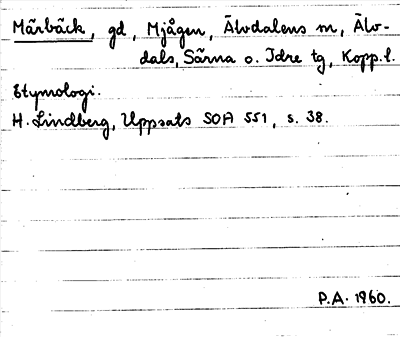 Märbäck, gd, Mjågen, Älvdalens m, Älv-
dals, Särna o. Idre tg, Kopp.l.
Etymologi.
H. Lindberg, Uppsats SOA 551, s. 38.
P.A. 1960.